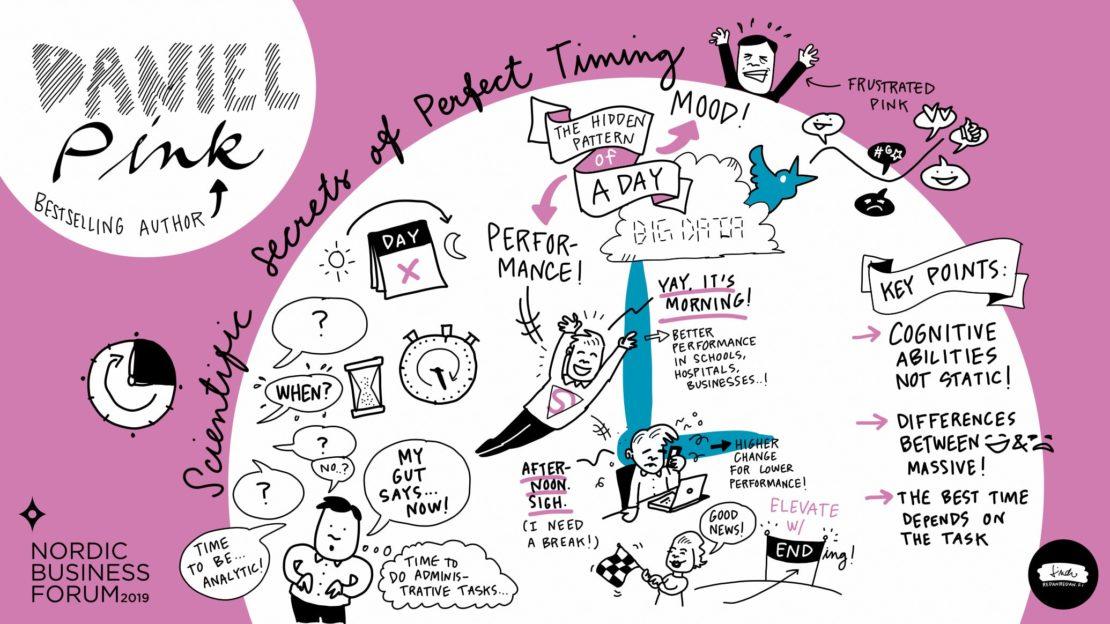 DANIEL
Pink
BESTSELLING AUTHOR
Scientific secrets of Perfect Timing
THE HIDDEN
PATTERN
of
A DAY
MOOD!
FRUSTRATED
PINK
#6
BIG DATA
PERFOR-
MANCE!
DAY
X
?
WHEN?
?
NO..?
?
MY
GUT
SAYS...
NOW!
TIME
TO BE...
ANALYTIC!
TIME TO
DO ADMINIS-
TRATIVE TASKS...
YAY, IT'S
MORNING!
BETTER
PERFORMANCE
IN SCHOOLS,
HOSPITALS,
BUSINESSES..!
S
AFTER-
NOON.
SIGH.
(I NEED
A BREAK!)
HIGHER
CHANGE
FOR LOWER
PERFORMANCE!
GOOD
NEWS!
ELEVATE
W/
ENDing!
KEY POINTS:
COGNITIVE
ABILITIES
NOT STATIC!
DIFFERENCES
BETWEEN &
MASSIVE!
THE BEST TIME
DEPENDS ON
THE TASK
NORDIC
BUSINESS
FORUM 2019
REDANREDAN.FI